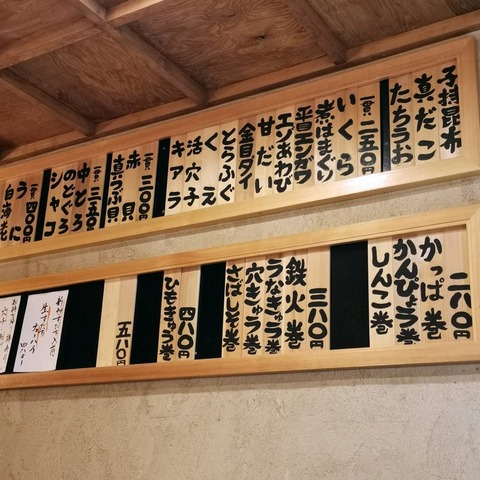 子持昆布
真だこ
たちうお
一貫 二五〇円
いくら
煮はまぐり
平目エンガワ
エゾあわび
甘だい
金目ダイ
とらふぐ
くえ
活穴子
キアラ
一貫 三〇〇円
赤貝
真つぶ貝
一貫 三五〇円
中とろ
のどぐろ
シャコ
一貫 四〇〇円
うに
白海老
二八〇円
かっぱ巻
かんぴょう巻
しんこ巻
三八〇円
鉄火巻
うなきゅう巻
穴きゅう巻
さばしそ巻
四八〇円
ひもきゅう巻
五八〇円